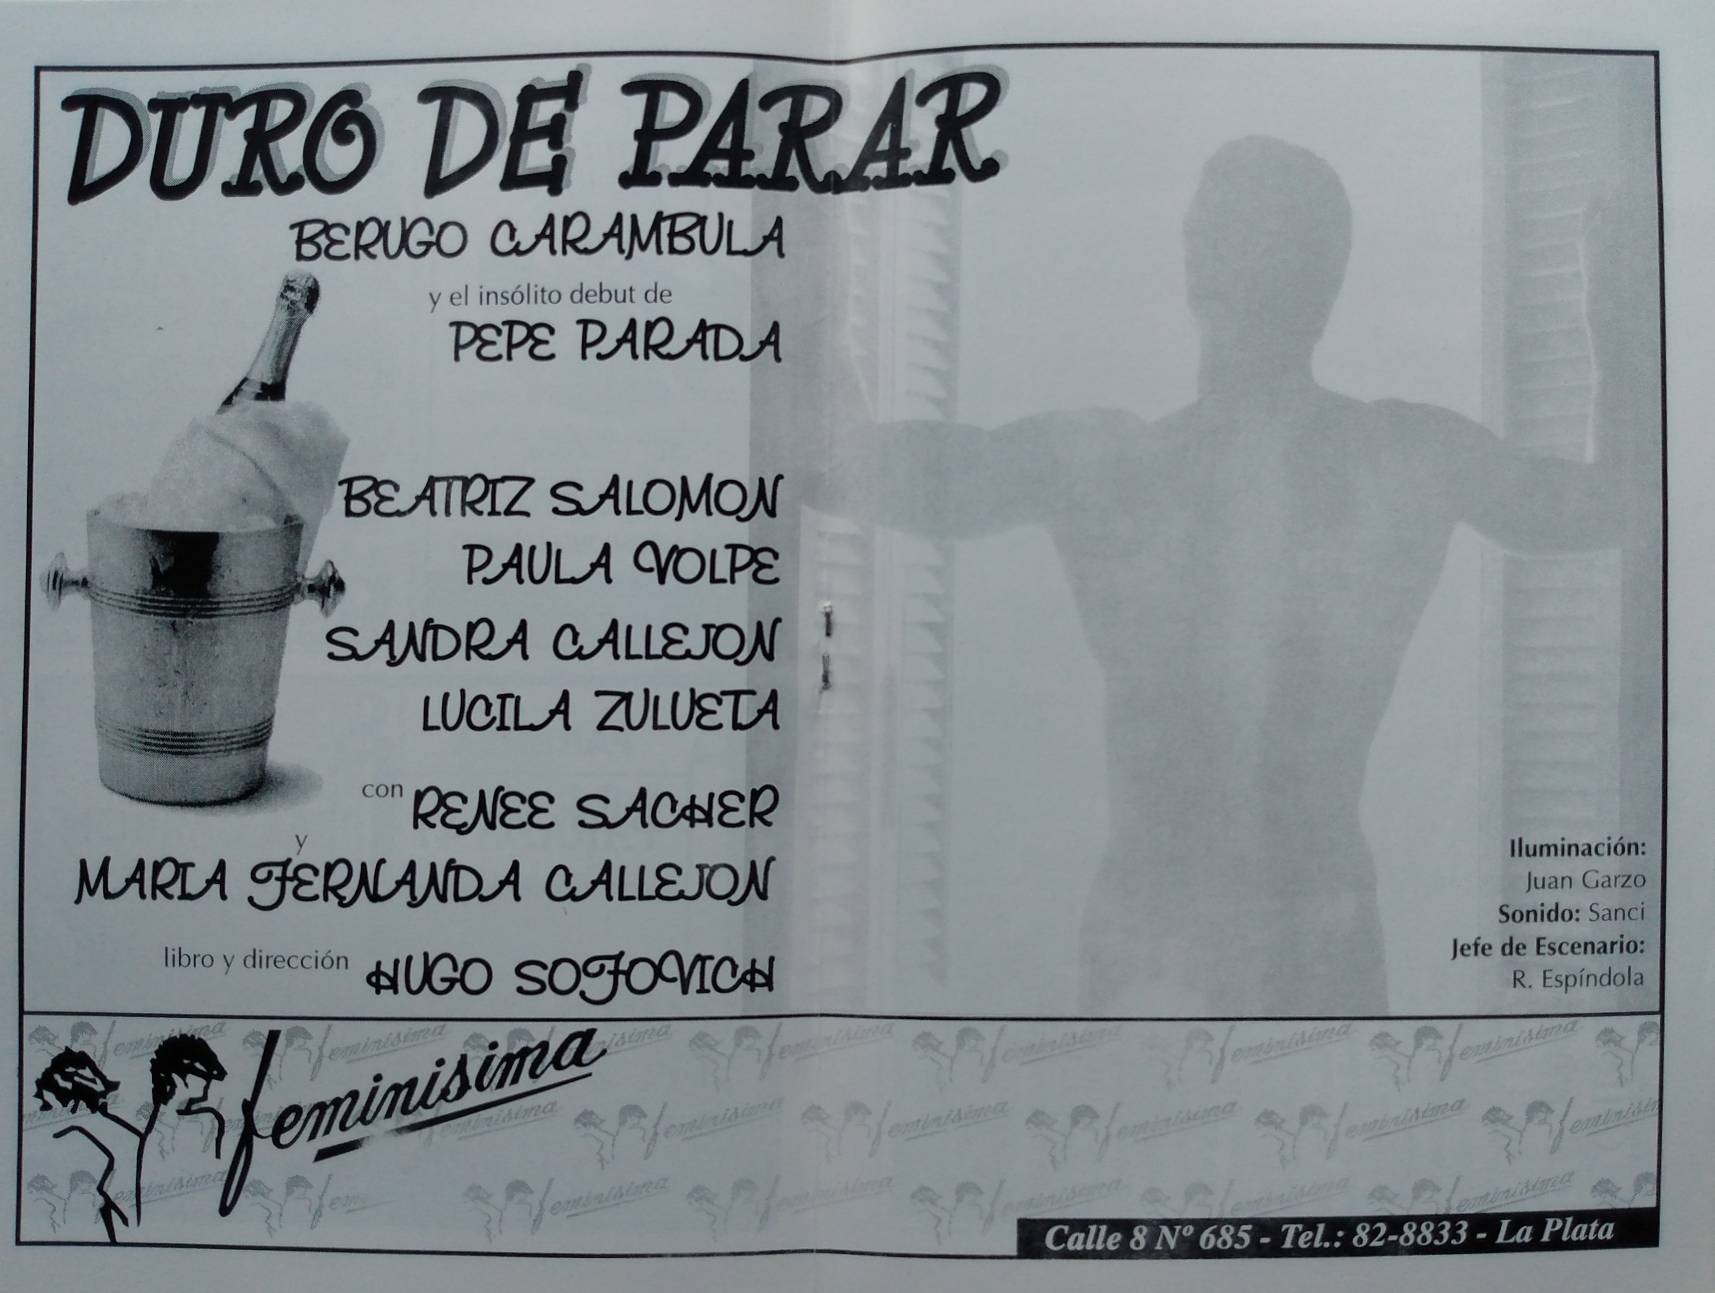 DURO DE PARAR
BERUGO CARAMBULA
y el insólito debut de
PEPE PARADA
BEATRIZ SALOMON
PAULA VOLPE
SANDRA CALLEJON
LUCILA ZULUETA
con RENEE SACHER
y
MARIA FERNANDA CALLEJON
libro y dirección HUGO SOFOVICH
Iluminación:
Juan Garzo
Sonido: Sanci
Jefe de Escenario:
R. Espíndola
feminisima
Calle 8 Nº 685 - Tel.: 82-8833 - La Plata